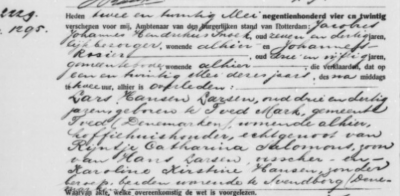 zzg.
1295.
Heden twee en twintig Mei negentienhonderd vier en twintig
verschenen voor mij, Ambtenaar van den burgerlijken stand van Rotterdam: Jacobus
Johannes Hendrikus Snoek, oud zeven en dertig jaren,
lijkbezorger, wonende alhier en Johannes
oud drie en vijftig
jaren, wonende alhier, die verklaarden, dat op
een en twintig Mei dezes jaars, des voormiddags
te twee uur, alhier is overleden:
Lars Hansen Larsen, oud drie en dertig
jaren, geboren te Tved Mark, gemeente
Tved, Denemarken, wonende alhier,
koffiehuishouder, echtgenoot van
Rijntje Catharina Salomons, zoon
van Hans Larsen, visscher en
Karoline Kirstine Hansen, zonder
beroep, beiden wonende te Svendborg, Dene-
Waarvan akte, welke overeenkomstig de wet is voorgelezen.